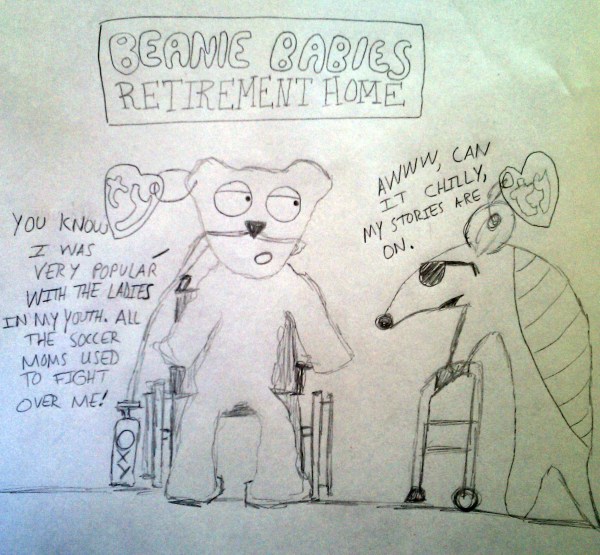 BEANIE BABIES
RETIREMENT HOME
ty
YOU KNOW
I WAS
VERY POPULAR
WITH THE LADIES
IN MY YOUTH. ALL
THE SOCCER
MOMS USED
TO FIGHT
OVER ME!
OXY
AWWW, CAN
IT CHILLY,
MY STORIES ARE
ON.
ty